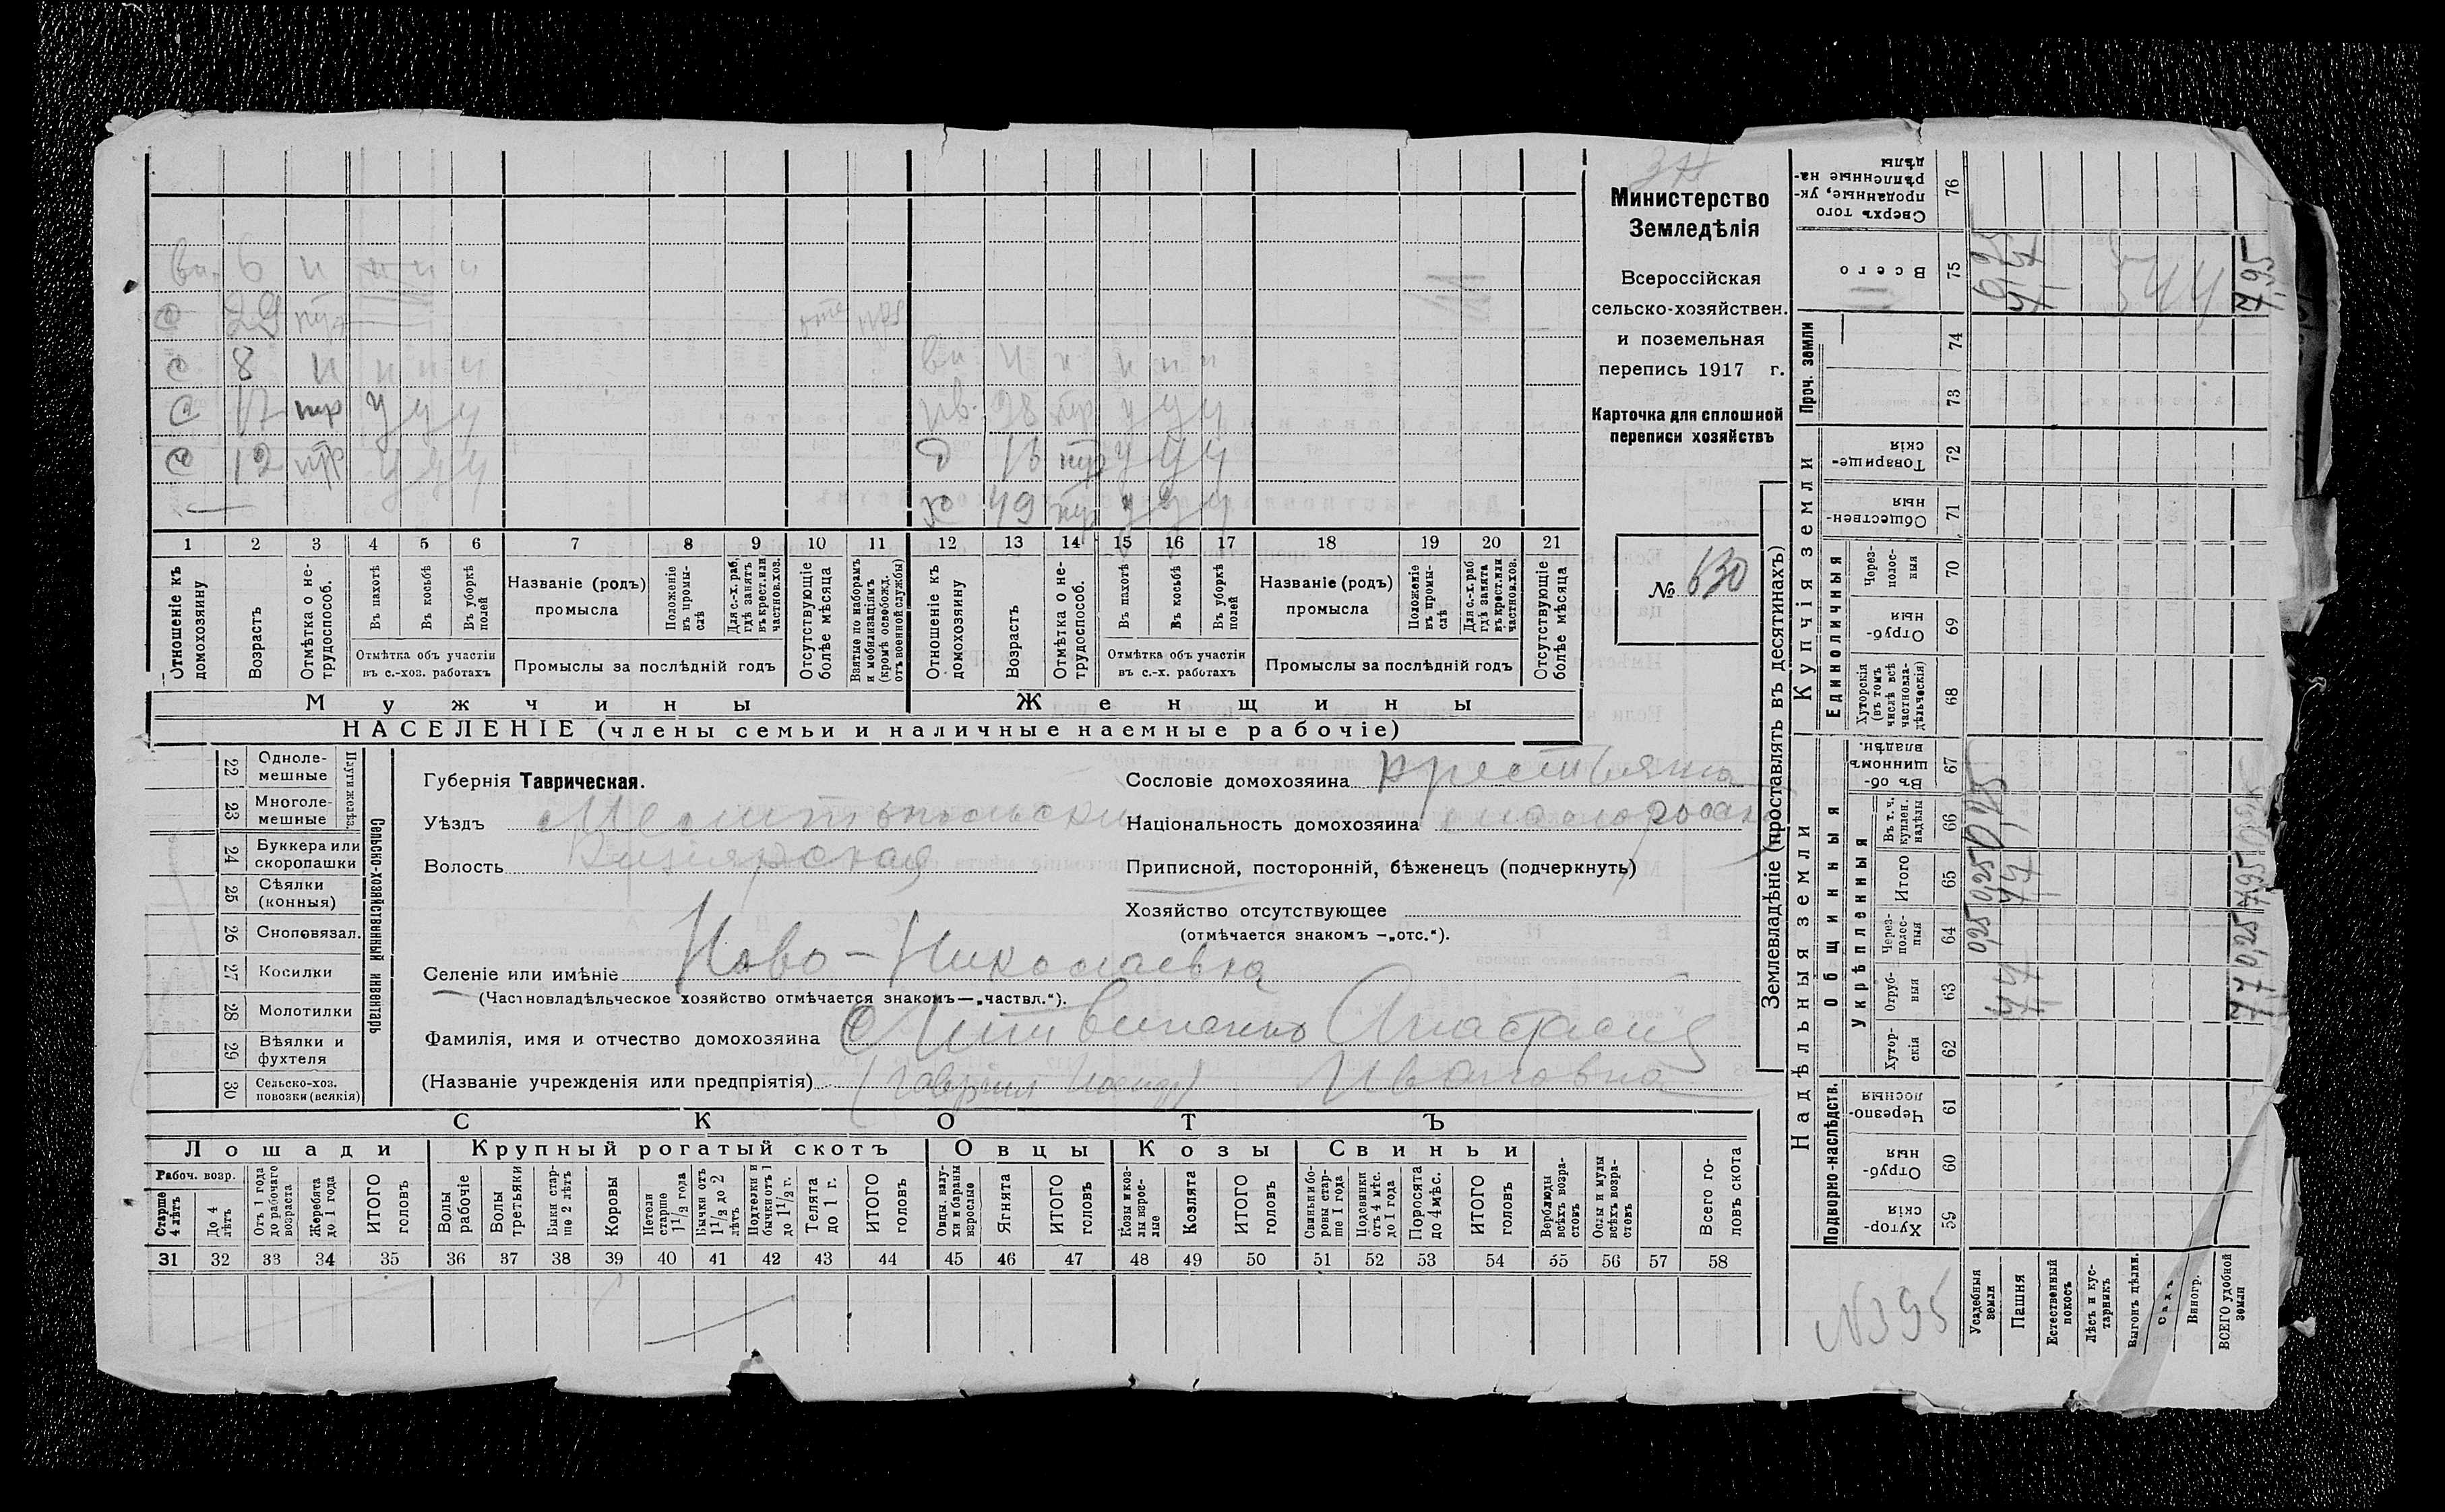 Министерство
Земледѣлія
Всероссійская
сельско-хозяйствен.
и поземельная
перепись 1917 г.
Карточка для сплошной
переписи хозяйствъ
№ 630
вн. 6 н н н н
с 29 отс
с 8 н н н н
вн н н н н
с 17 пгр у у у
38 у у у
с 12 пгр у у у
д у у у
х 49 у у у
1 2 3 4 5 6 7 8 9 10 11 12 13 14 15 16 17 18 19 20 21
Отношеніе къ домохозяину
Возрастъ
Отмѣтка о не-трудоспособ.
Въ пахотѣ
Въ косьбѣ
Въ уборкѣ полей
Отмѣтка объ участіи въ с.-хоз. работахъ
Названіе (родъ) промысла
Положеніе въ промы-слѣ
Для с.-х. раб. гдѣ занятъ въ крест. или частнов. хоз.
Промыслы за послѣдній годъ
Отсутствующіе болѣе мѣсяца
Взятые по наборамъ и мобилизаціямъ (кромѣ освобожд. отъ военной службы)
Отношеніе къ домохозяину
Возрастъ
Отмѣтка о не-трудоспособ.
Въ пахотѣ
Въ косьбѣ
Въ уборкѣ полей
Отмѣтка объ участіи въ с.-х. работахъ
Названіе (родъ) промысла
Положеніе въ промы-слѣ
Для с.-х. раб. гдѣ занята въ крест. или частнов. хоз.
Промыслы за послѣдній годъ
Отсутствующіе болѣе мѣсяца
Мужчины
Женщины
НАСЕЛЕНІЕ (члены семьи и наличные наемные рабочіе)
Сельско-хозяйственный инвентарь
Плуги желѣз.
22 Однолемешные
23 Многолемешные
24 Буккера или скоропашки
25 Сѣялки (конныя)
26 Сноповязал.
27 Косилки
28 Молотилки
29 Вѣялки и фухтеля
30 Сельско-хоз. повозки (всякія)
Губернія Таврическая.
Уѣздъ Мелитопольскій
Волость
Селеніе или имѣніе Ново-Николаевка
(Частновладѣльческое хозяйство отмѣчается знакомъ—„частвл.“).
Фамилія, имя и отчество домохозяина Литвиненко Анастасия
(Названіе учрежденія или предпріятія) Ивановна
Сословіе домохозяина крестьянка
Національность домохозяина малоросс
Приписной, посторонній, бѣженецъ (подчеркнуть)
Хозяйство отсутствующее
(отмѣчается знакомъ —„отс.“).
СКОТЪ
Лошади
Крупный рогатый скотъ
Овцы
Козы
Свиньи
Рабоч. возр.
Старше 4 лѣтъ
До 4 лѣтъ
Отъ 1 года до рабочаго возраста
Жеребята до 1 года
ИТОГО головъ
Волы рабочіе
Волы третьяки
Быки старше 2 лѣтъ
Коровы
Нетели старше 1 1/2 года
Бычки отъ 1 1/2 до 2 лѣтъ
Подтелки и бычки отъ 1 до 1 1/2 г.
Телята до 1 г.
ИТОГО головъ
Овцы, валухи и бараны взрослые
Ягнята
ИТОГО головъ
Козы и козлы взрослые
Козлята
ИТОГО головъ
Свиньи и боровы старше 1 года
Подсвинки отъ 4 мѣс. до 1 года
Поросята до 4 мѣс.
ИТОГО головъ
Верблюды всѣхъ возрастовъ
Ослы и мулы всѣхъ возрастовъ
Всего головъ скота
31 32 33 34 35 36 37 38 39 40 41 42 43 44 45 46 47 48 49 50 51 52 53 54 55 56 57 58
Землевладѣніе (проставлять въ десятинахъ)
Надѣльныя земли
Купчія земли
Проч. земли
Подворно-наслѣдств.
Общинныя
Укрѣпленныя
Единоличныя
Хуторскія 59
Отрубныя 60
Черезполосныя 61
Хуторскія 62
Отрубныя 63
Черезполосныя 64
Итого 65
Въ т. ч. куплен. надѣлы 66
Въ общинномъ владѣн. 67
Хуторскія (въ томъ числѣ всѣ частновладѣльческія) 68
Отрубныя 69
Черезполосныя 70
Общественныя 71
Товарищескія 72
73
74
Всего 75
Сверхъ того проданные, укрѣпленные надѣлы 76
N395
Усадебныя земли 0,25 0,25
Пашня
Естественный покосъ
Лѣсъ и кустарникъ
Выгонъ дѣлин.
Садъ
Виногр.
ВСЕГО удобной земли 7,7 0,25 7,95 7,95